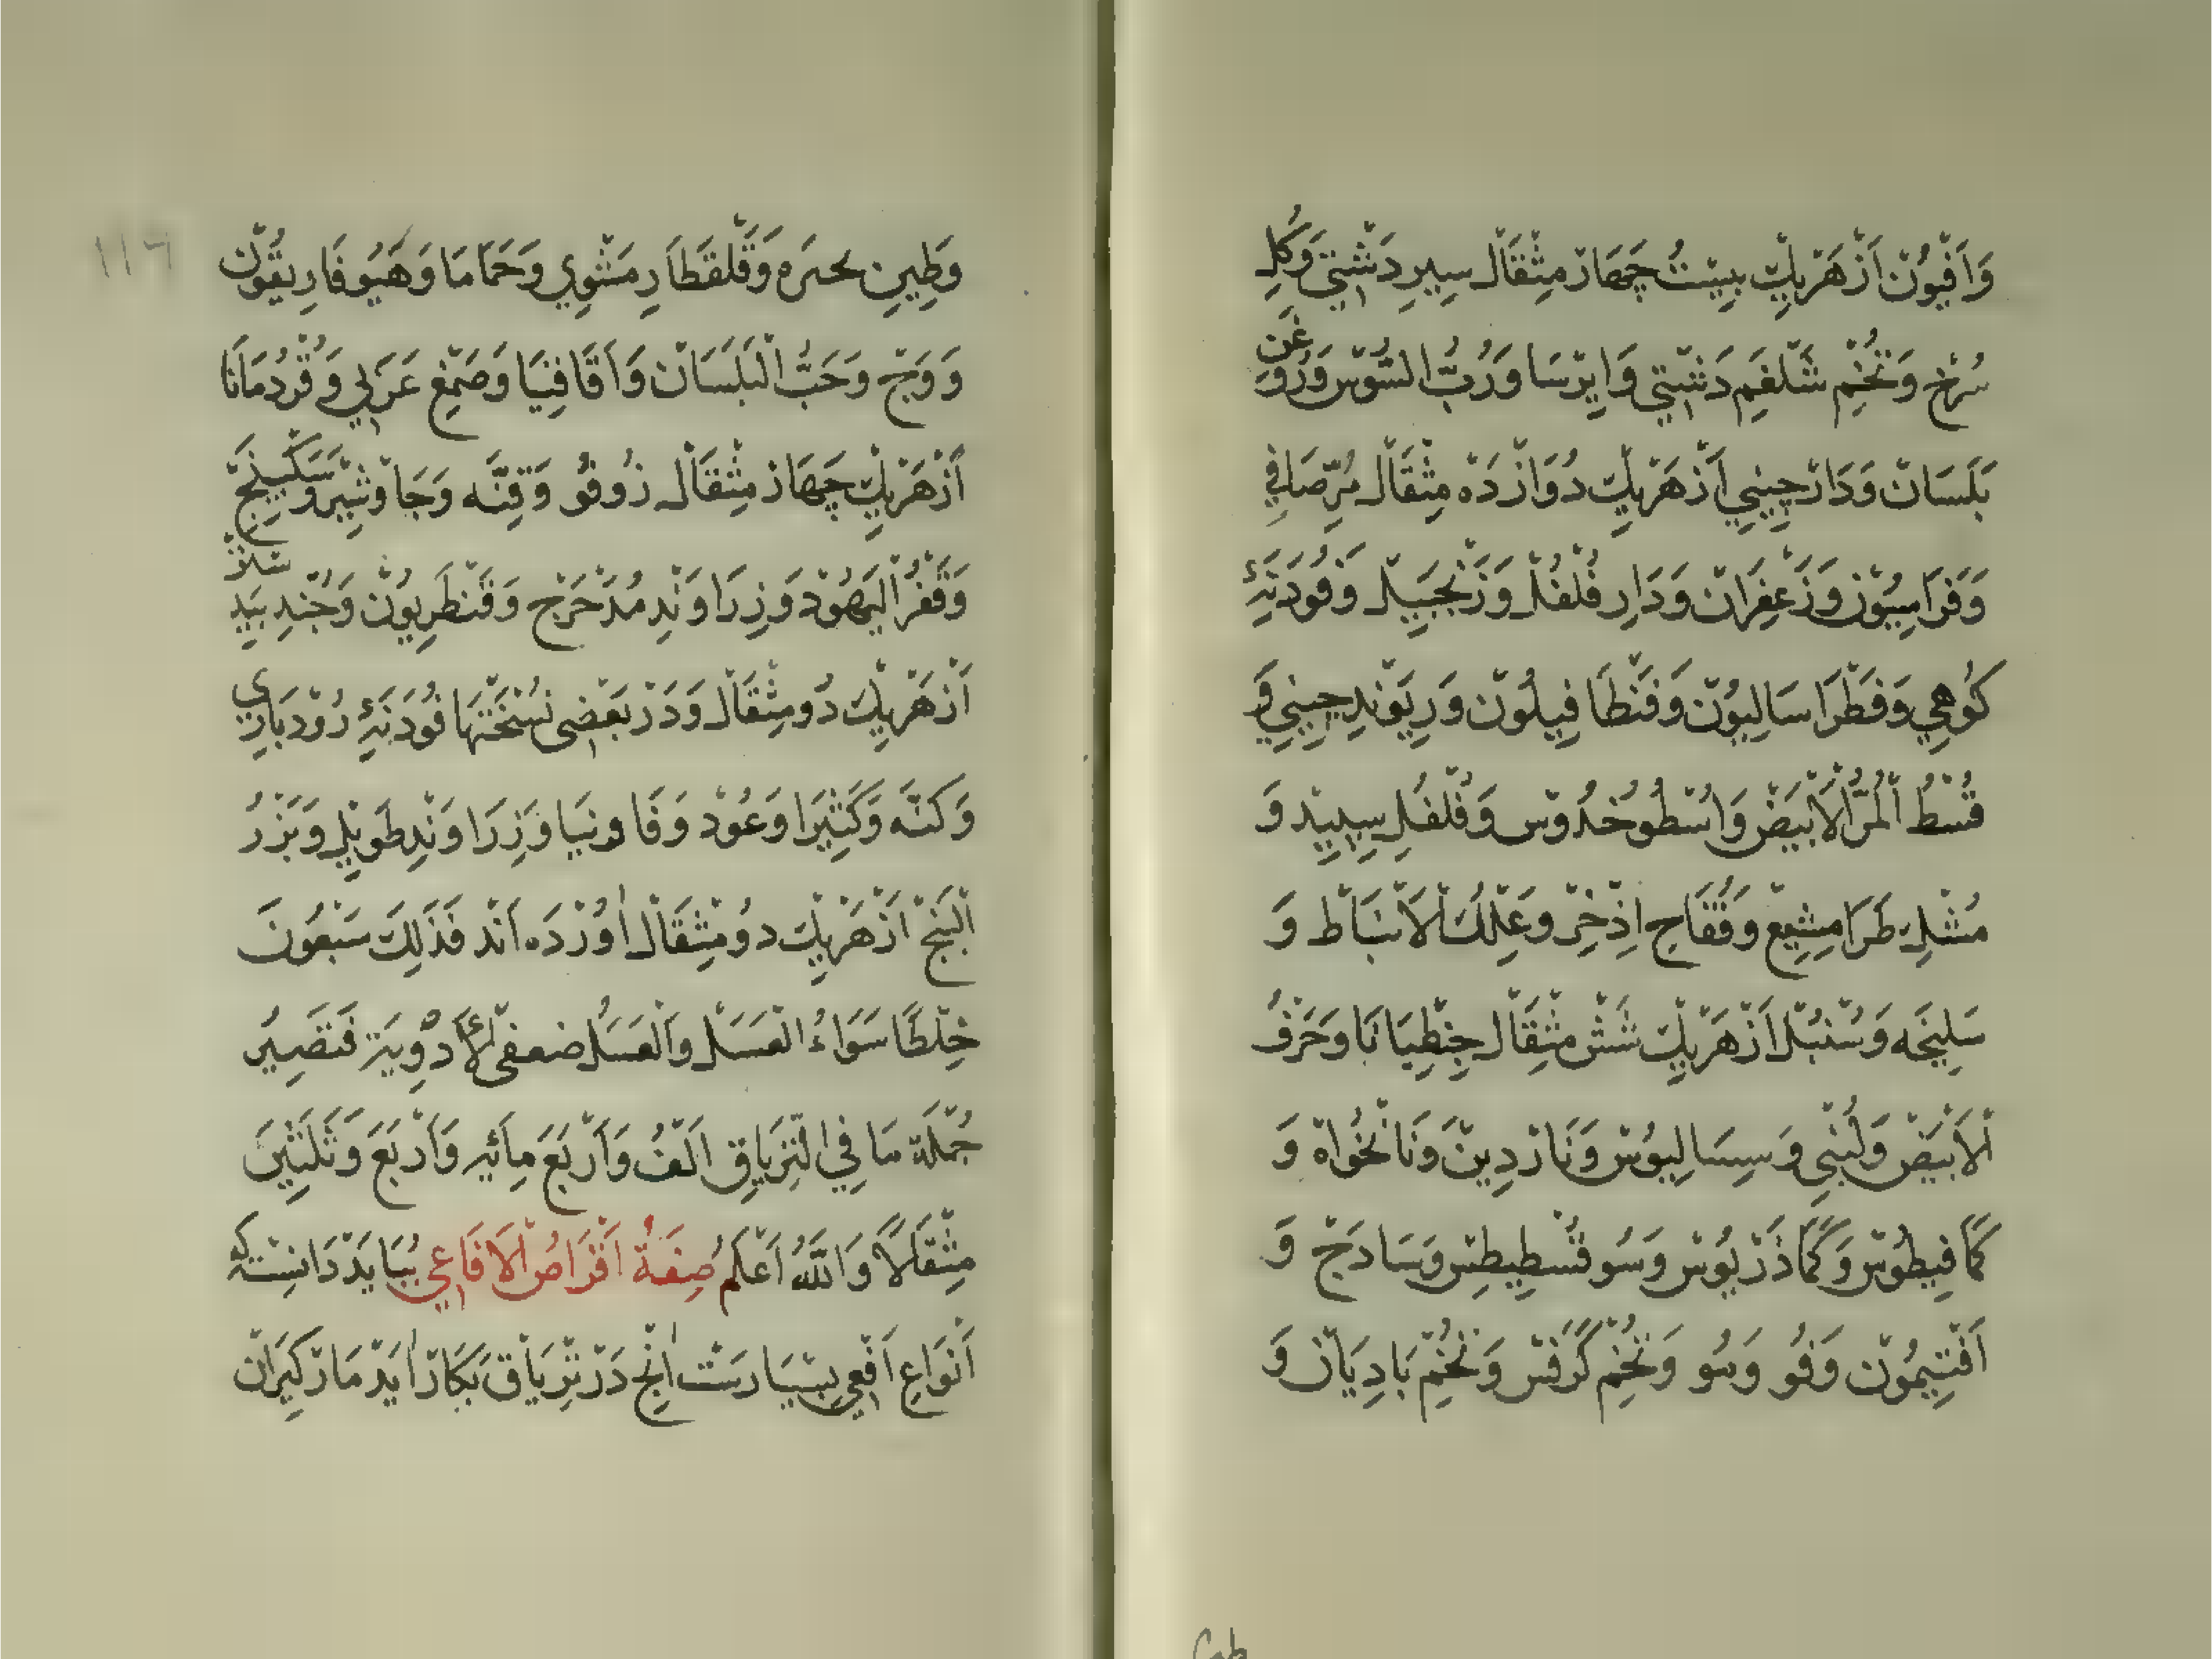 وَاَفْيُوْن اَزْهَرْيِكْ بِيْسْتُ چَهَارْ مِثْقَالْ سِيرِ دَشْتِيْ وَكُلِ
سُرْخ وَتُخْمِ شَلْغَمِ دَشْتِيْ وَاِيرْسَا وَرُبُّ السُّوْسْ وَرُوْغَنِ
بَلَسَانْ وَدَارْچِينِي اَزْهَرْيِكْ دُوَازْدَهْ مِثْقَالْ مُرِّ صَافِي
وَفَرَاسِيُوْنْ وَزَعْفِرَانْ وَدَارِ فُلْفُلْ وَزَنْجَبِيلْ وَفُودَنَۀِ
كُوهِي وَفَطْرَاسَالِيُوْن وَفَنْطَافِيلُونْ وَرِيْوَنْدِ چِينِي وَ
قُسْطُ الْمُرِّ الْاَبْيَضْ وَاُسْطُوخُدُوْس وَفُلْفُلِ سِپِيدْ وَ
مُشْكِ طَرَامِشِيعْ وَفُقَّاحِ اِذْخِرْ وَعِلْكُ الْاَنْبَاطْ وَ
سَلِيخَه وَسُنْبُلْ اَزْهَرْيِكْ شَشْ مِثْقَالْ جِنْطِيَانَا وَحَرْفُ
الْاَبْيَضْ وَلُبْنِي وَسِسَالِيُوسْ وَنَارْدِينْ وَنَانْخُوَاهْ وَ
كَمَافِيطُوسْ وَكَمَاذَرْيُوسْ وَسُوقُسْطِيطِسْ وَسَادَجْ وَ
اَفْتِيمُوْن وَفُو وَمُو وَتُخْمِ كَرَفْسْ وَتُخْمِ بَادِيَانْ وَ
وَطِينِ بحىره وَقَلْقَطَارِ مَشْوِي وَحَمَامَا وَهَيُوفَارِيقُوْن
وَوَجْ وَحَبُّ الْبَلَسَانْ وَاَقَاقِيَا وَصَمْغِ عَرَبِي وَقُرْدُمَانَا
اَزْهَرْيِكْ چَهَارْ مِثْقَالْ دُوقُو وَقِنَّه وَجَاوْشِيرْ وَسَكْبِينَجْ
وَقَفْرُ الْيَهُوْد وَزِرَاوَنْدِ مُدَحْرَجْ وَقَنْطَرِيُوْن وَجُنْدِ بَيدَسْتَرْ
اَزْهَرْيِكْ دُو مِثْقَالْ وَدَرْ بَعْضِي نُسْخَتْهَا فُودَنَۀِ رُوْدبَارِي
وَكَنَّه وَكَثِيْرَا وَعُوْد وَفَاوِنيَا وَزِرَاوَنْدِ طَوِيلْ وَبَزْرُ
الْبَنْج اَزْهَرْيِكْ دُو مِثْقَالْ اٰوُرْدَه اَنْد فَذَلِكَ سَبْعُونَ
خِلْطًا سَوَاءُ الْعَسَلْ وَالْعَسَلُ ضعفى الْاَدْوِيَةِ فَتَصِيرُ
جُمْلَة مَا فِي التِّرْيَاقِ اَلْفُ وَاَرْبَعَ مِائَهِ وَاَرْبَعَ وَثَلٰثِينَ
مِثْقَالًا وَاللّٰهُ اَعْلَم صِفَةُ اَقْرَاصُ الْاَفَاعِي بِبَايَدْ دَانِسْت كِه
اَنْوَاعِ اَفْعِي بِسْيَارَسْت اٰنْچِ دَرْ تِرْيَاقْ بَكَارْ اٰيَدْ مَارْكِيرَانْ
١١٦